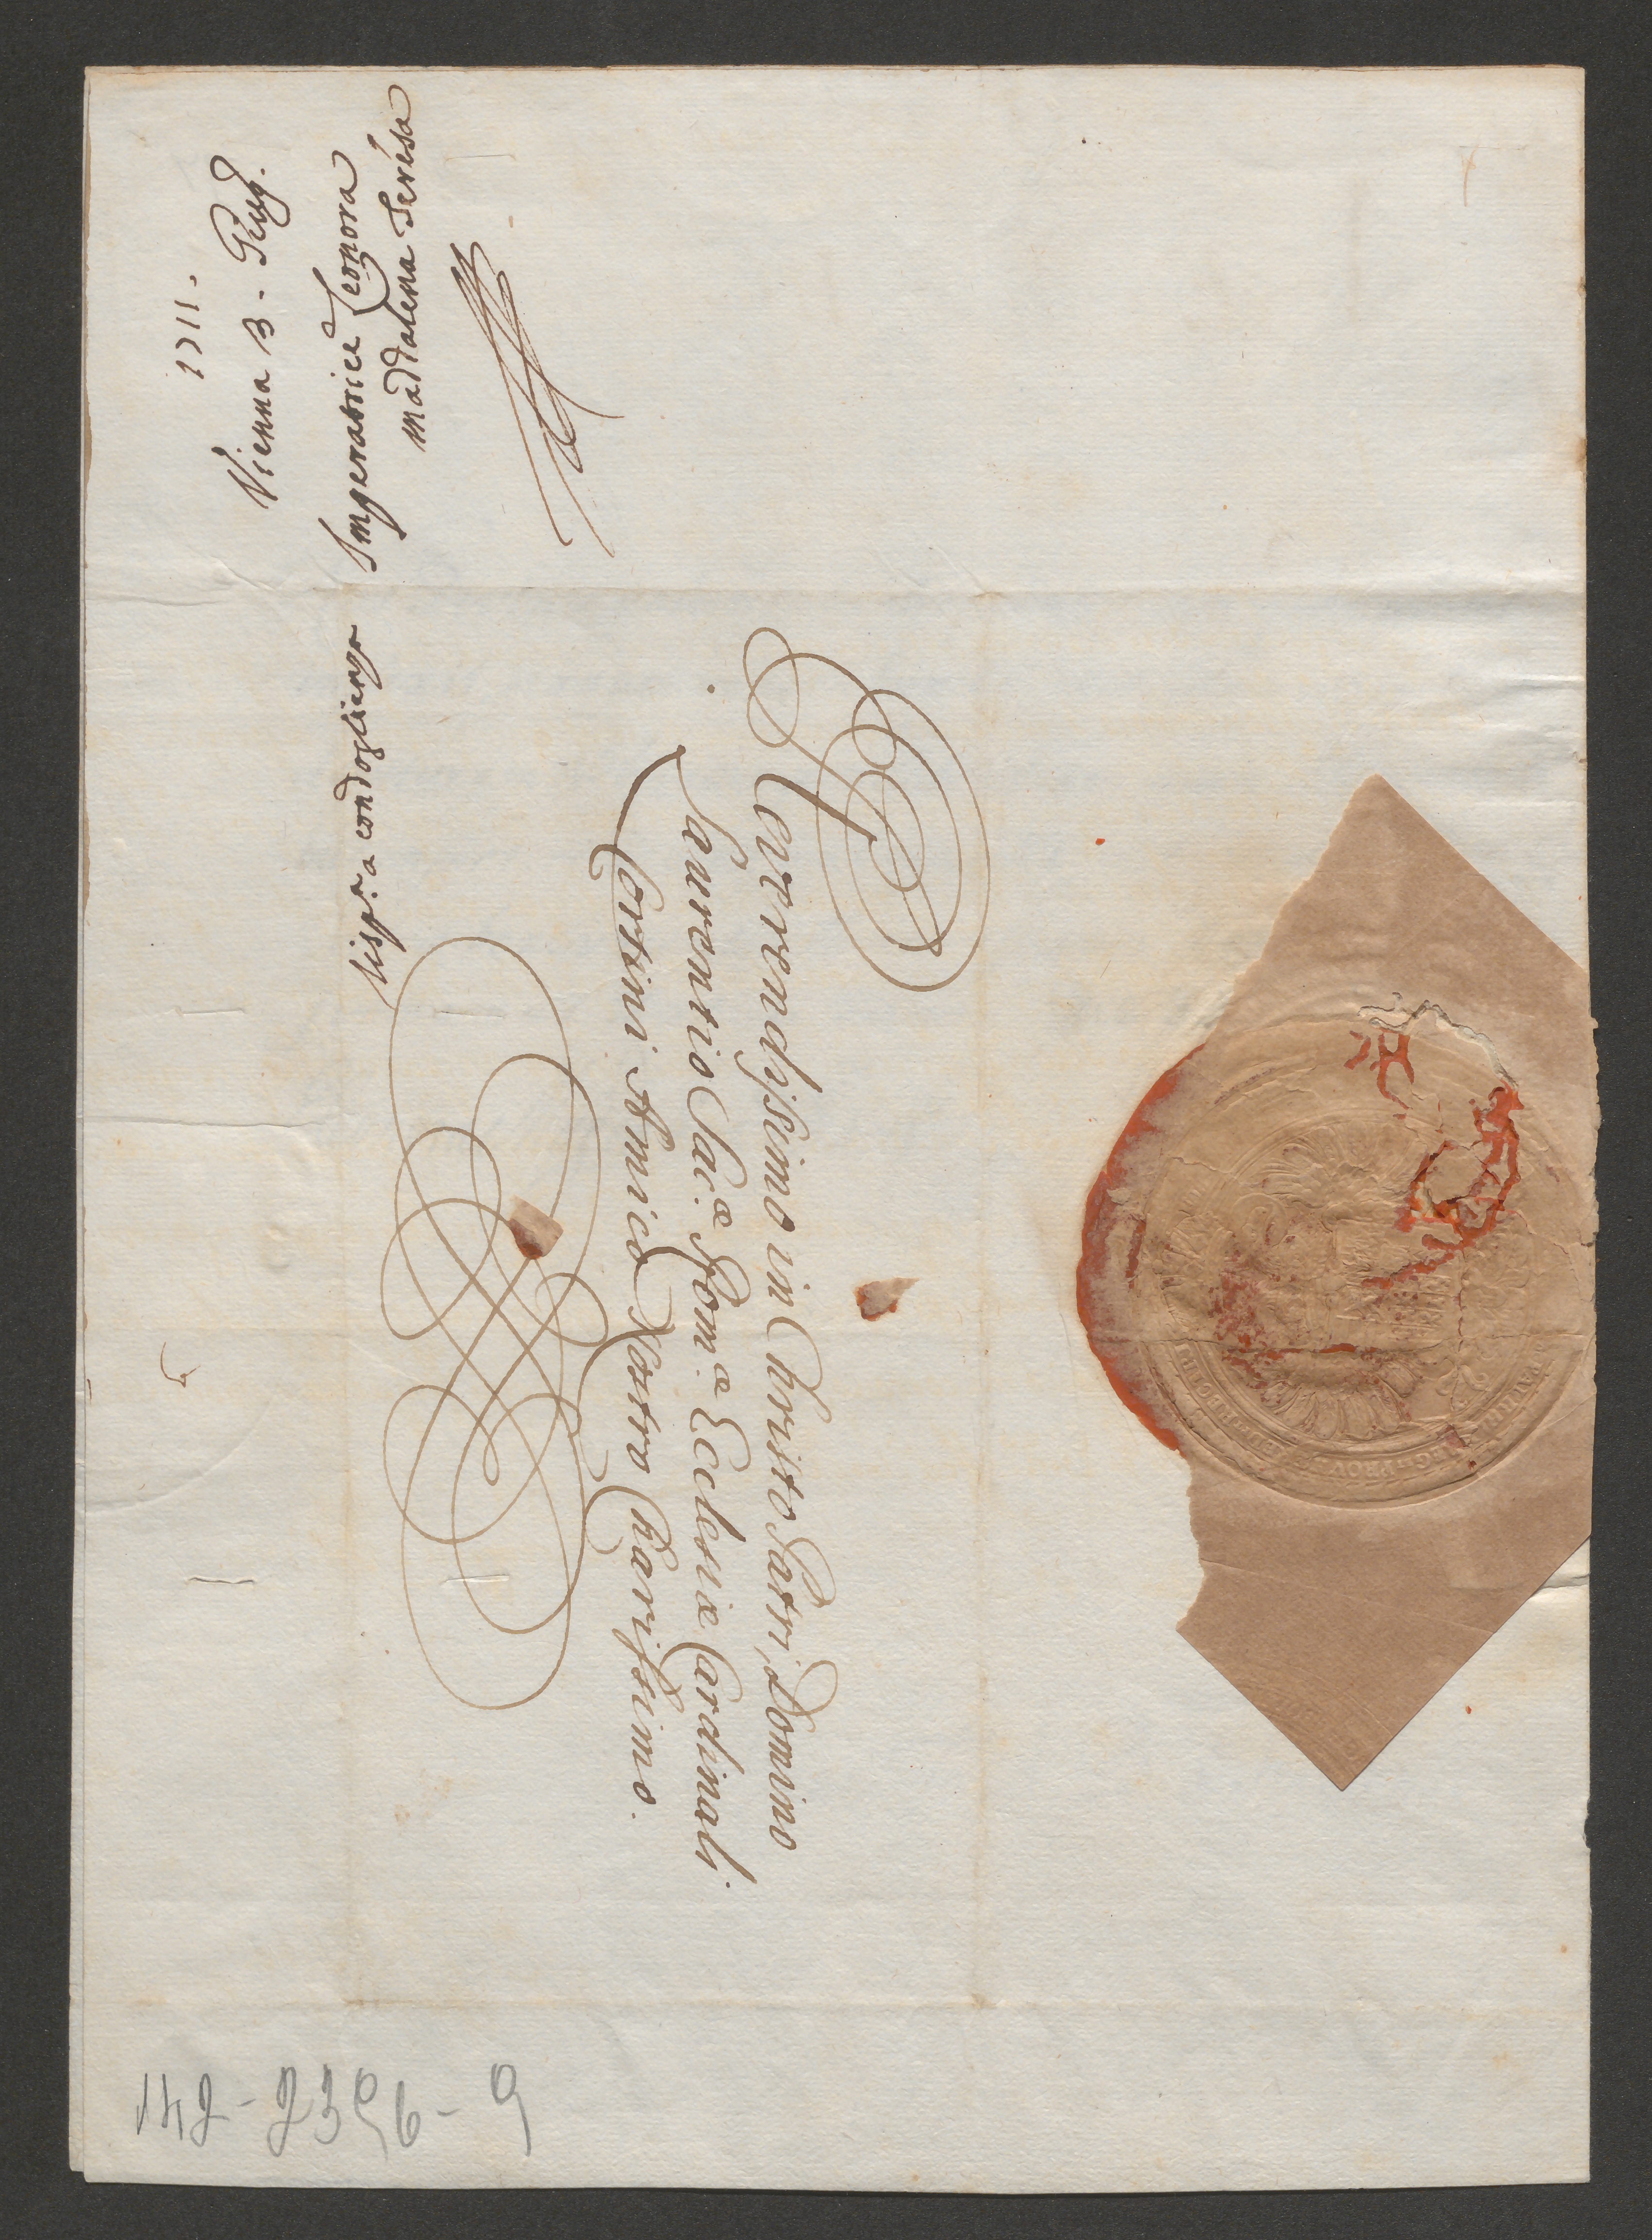 1711.
Vienna 3. Giug.
Imperatrice Leonora
Maddalena Teresa
Risp.ta a condoglianza
Reverendissimo in Christo Patri, Domino
Laurentio Sac.æ Rom.æ Ecclesiæ Cardinali
Corsini Amico Nostro Charissimo.
142-2396-9